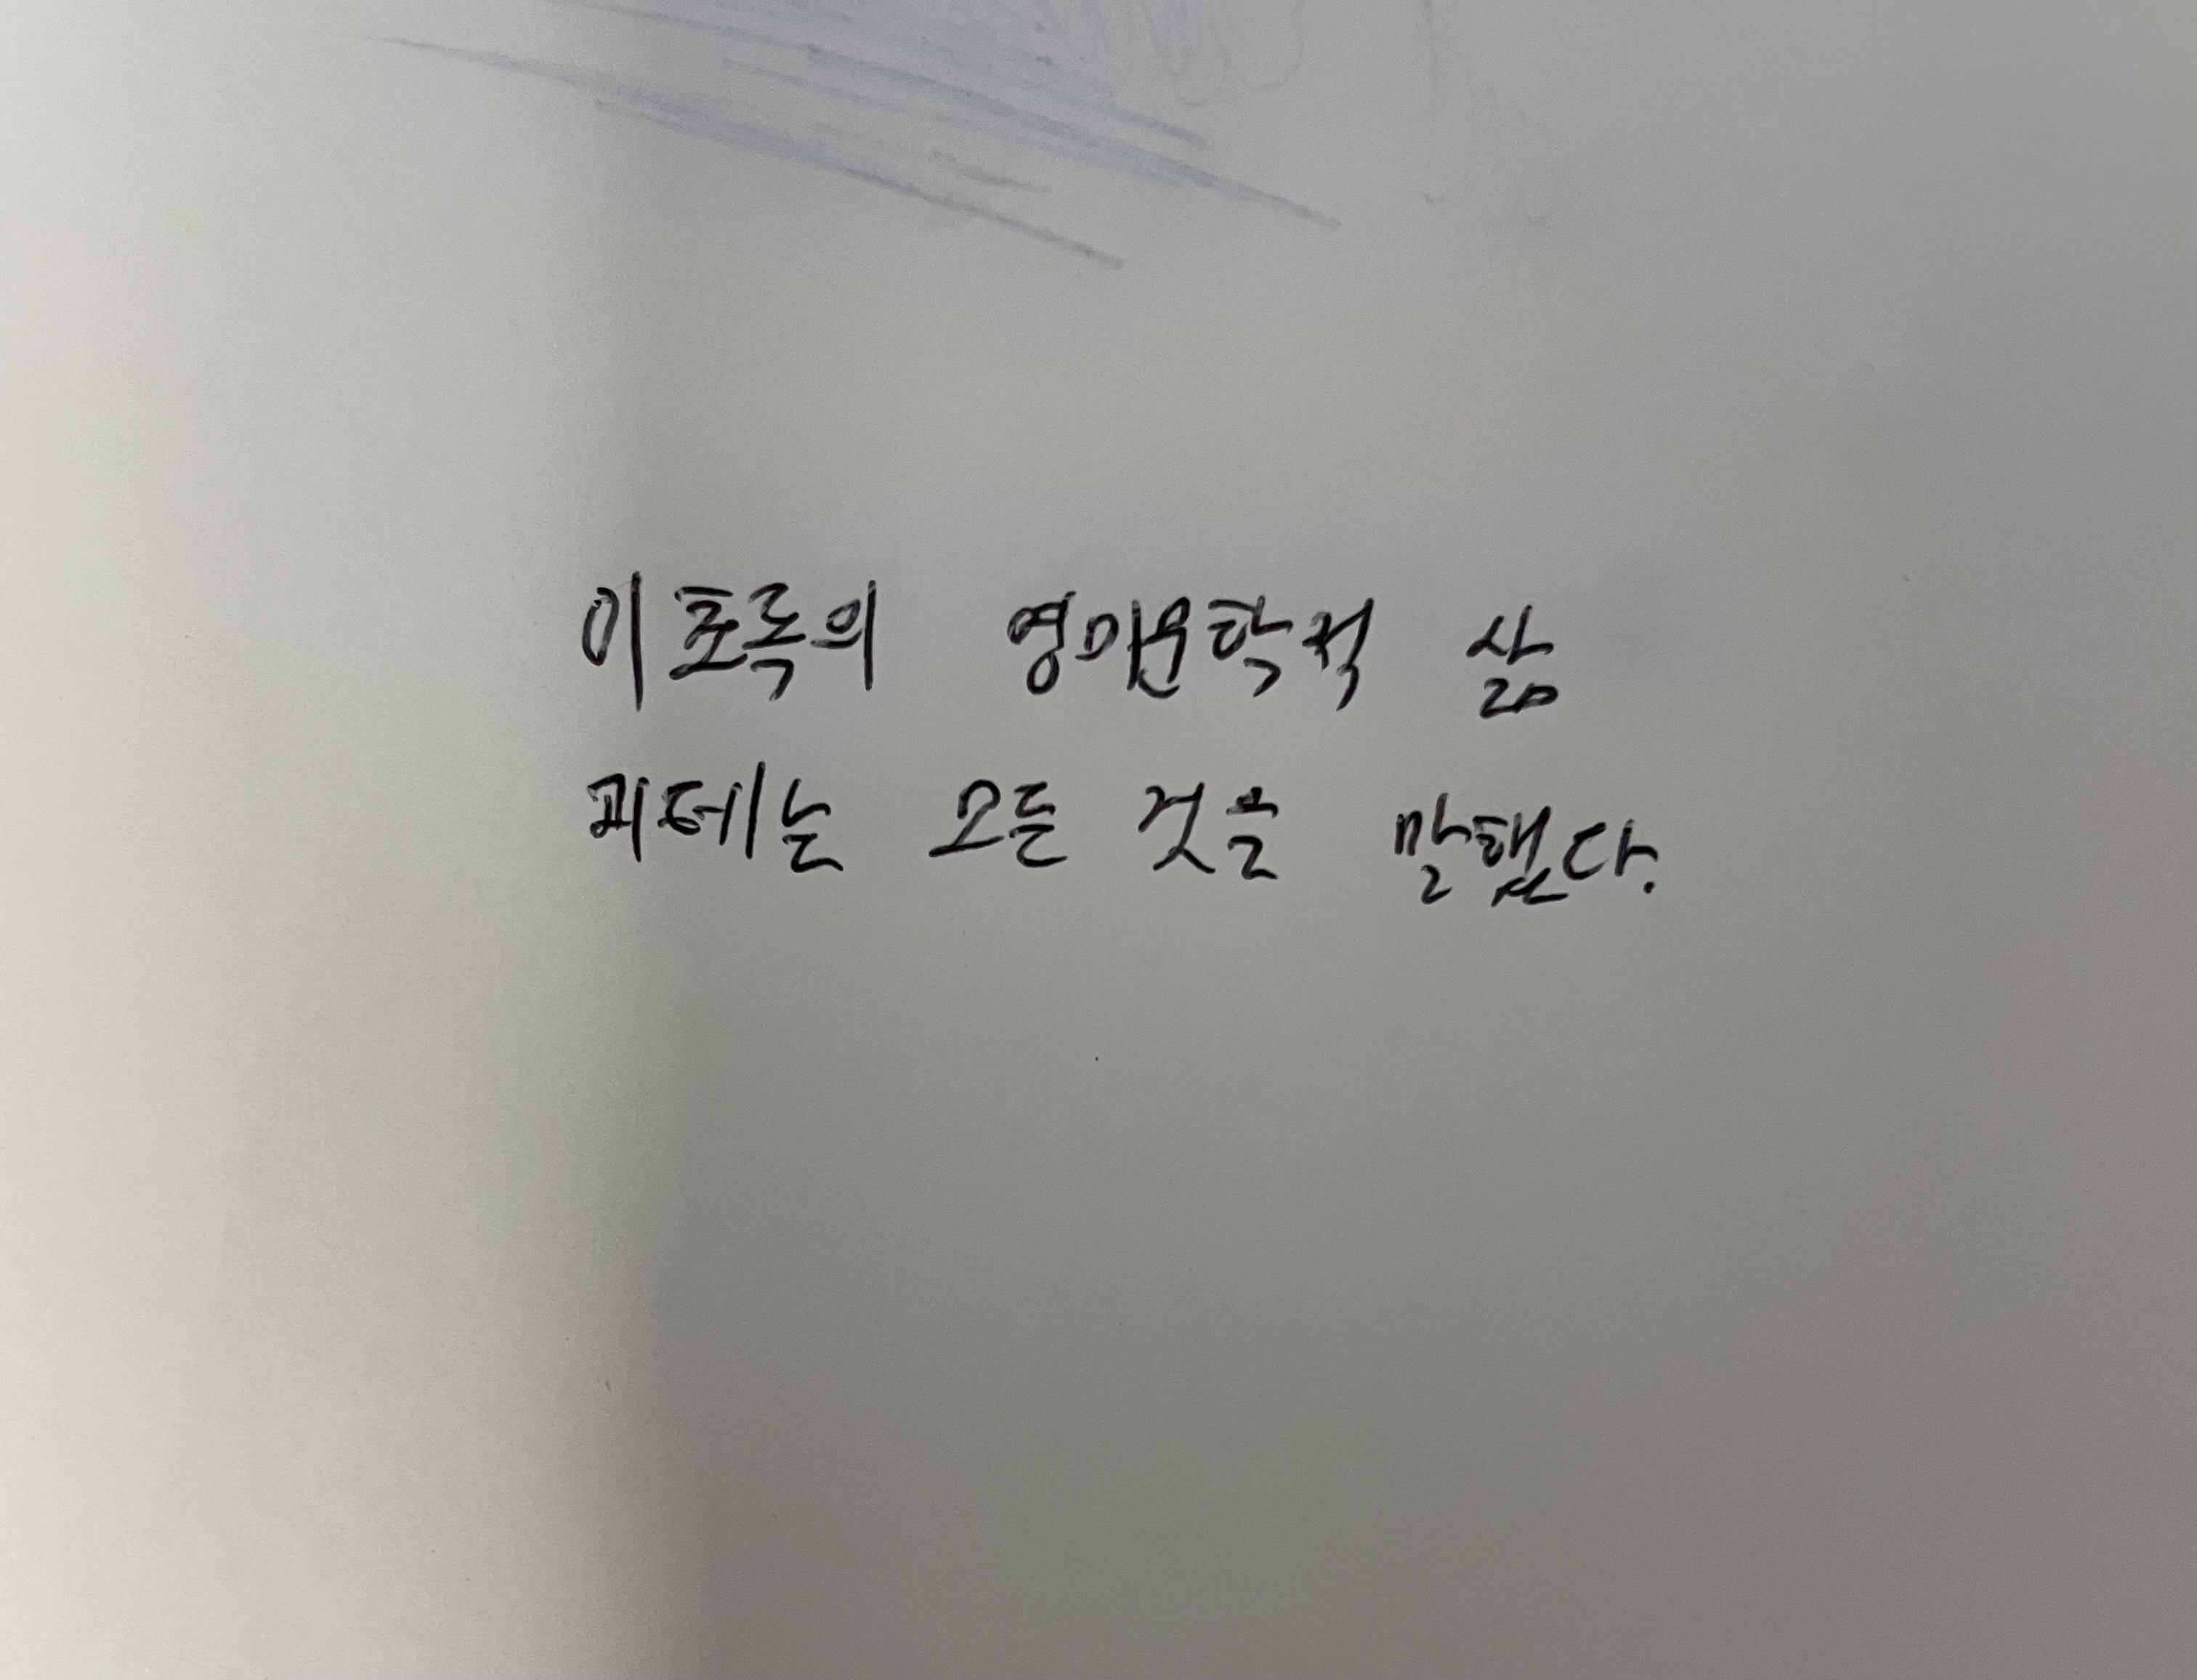 이초록의 영미문학적 삶
괴테는 모든 것을 말했다.